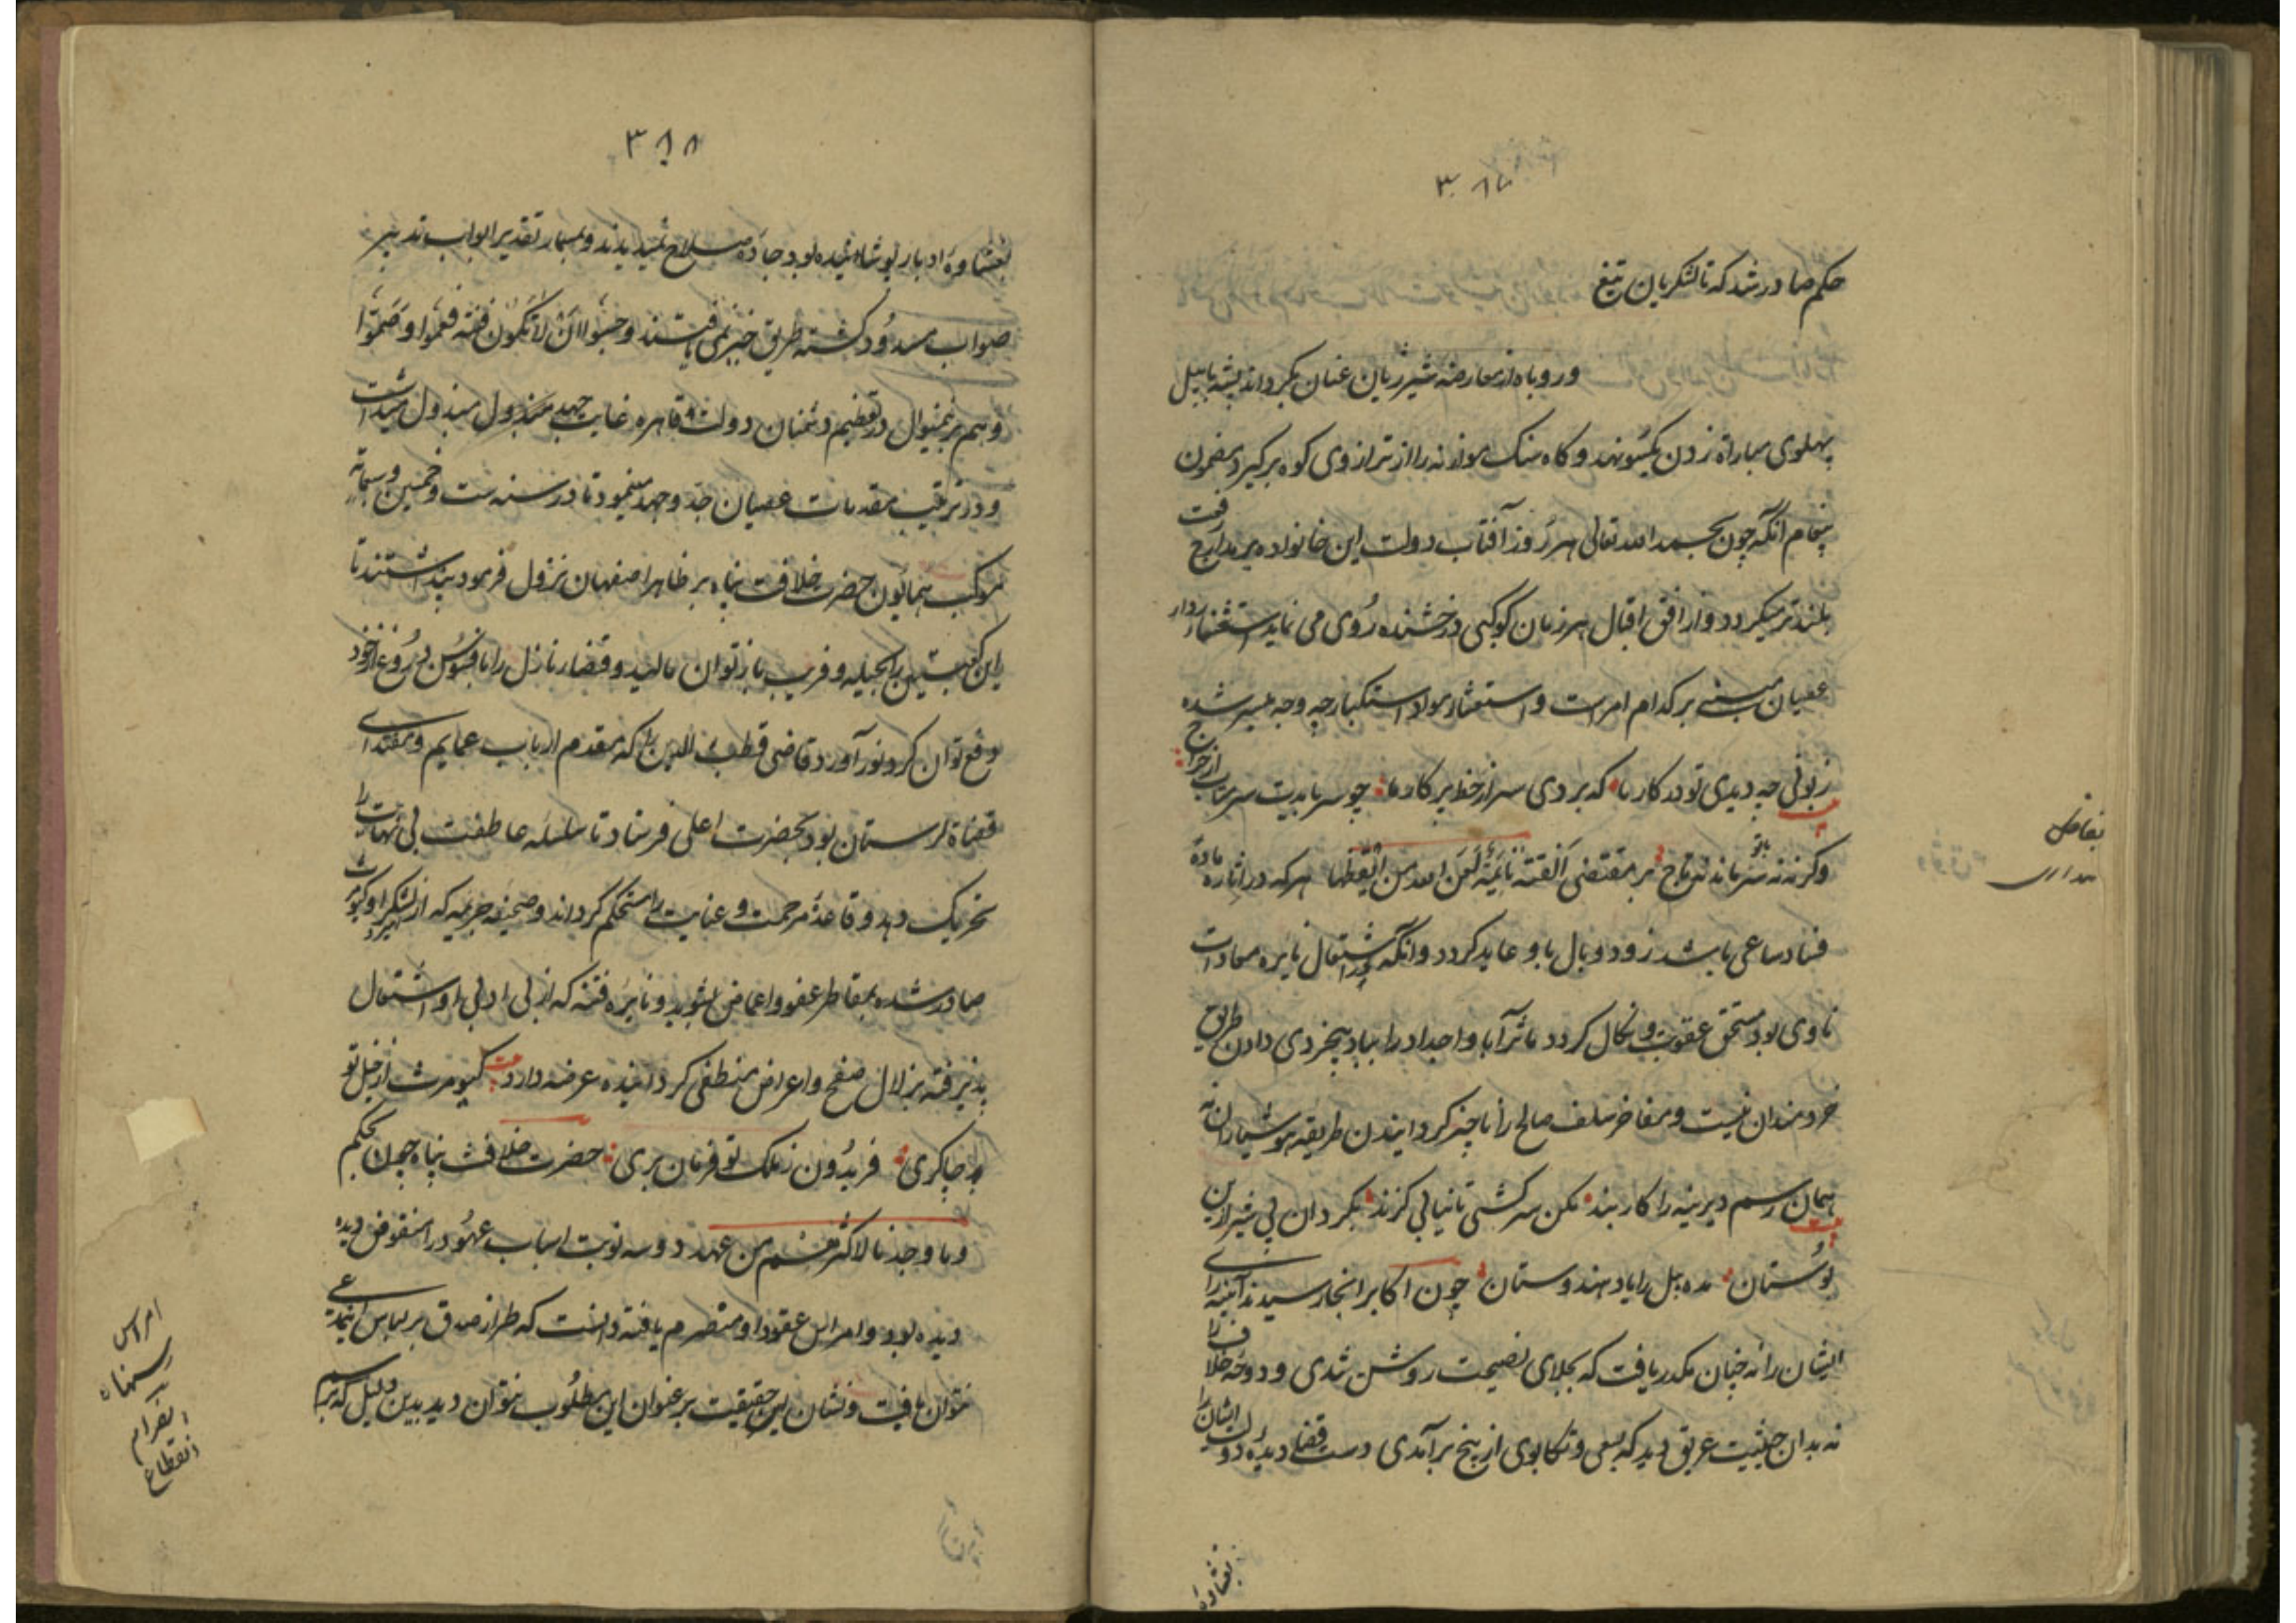 ۳۸۷
حکم صادر شد که تا لشکریان تیغ
و روباه از معارضه شیر ژیان عنان بکرداند پشه با پیل
پهلوی مباراة زدن یکسو نهد و کاه سنک موازنه را از ترازوی کوه برکیرد مضمون
پیغام آنکه چون بحمد الله تعالی هر روز آفتاب دولت این خانواده بر مدارج رفعت
بلندتر میکردد و از افق اقبال هر زمان کوکبی درخشنده روی می نماید استشعار
عصیان مبنی بر کدام امرست و استعثار مواد استکبار چه وجه میسر شده
زبونی چه دیدی تو در کار ما که بردی سر از خط پرکار ما چو سر بایدت سر متاب از خراج
وکرنه نه سر ماند نه تاج بر مقتضی الفتنة نائمة لعن الله من ایقظها هرکه در اثاره ماده
فساد ساعی باشد زود وبال باو عاید کردد و آنکه در اشتعال نایره معادات
ناوی بود مستحق عقوبت و نکال کردد مآثر آبا و اجداد را بباد بیخردی دادن طریق
خردمندان نیست و مفاخر سلف صالح را ناچیز کردانیدن طریقه هوشیاران نه
همان رسم دیرینه را کار بند مکن سرکشی تا نیابی کزند مکردان پی شیر ازین
بوستان مده پیل را یاد هندوستان چون اکابر انجا رسیدند آینه رای
ایشان را نه چنان مکدر یافت که بجلای نصیحت روشن شدی و دوحه خلاف را
نه بدان حیثیت عریق دید که بسعی و تکاپوی از بیخ برآمدی دست قضا دیده دولت ایشان را
بغشاوه
تفاضل
۳۸۸
بغشاوه ادبار پوشانیده بود جاده صلاح نمیدیدند و بمسمار تقدیر ابواب تدبیر
صواب مسدود کشته طریق خیر نمی یافتند و حسبوا ان لا تکون فتنة فعموا و صموا
و هم برینمنوال در تعظیم دشمنان دولت قاهره غایت جهد مبذول میداشت
و در ترتیب مقدمات عصیان جد و جهد مینمود تا در سنه ست و خمسین و سبعمائة
موکب همایون حضرت خلافت پناه بر ظاهر اصفهان نزول فرمود پنداشتند تا
این کعبتین را بحیله و فریب باز توان مالید و قضاء نازل را بافسوس دروغ از خود
دفع توان کرد نورآورد قاضی قطب الدین را که مقدم ارباب عمایم و مقتدای
قضاة لرستان بود بحضرت اعلی فرستاد تا سلسله عاطفت بی نهایت را
تحریک دهد و قاعده مرحمت و عنایت را مستحکم کرداند و صحیفه جریمه که از لشکر او
صادر شده بمقاطر عفو و اغماض بشوید و نایره فتنه که از بی ادبی او اشتعال
پذیرفته بزلال صفح و اعراض منطفی کردانیده عرضه دارد کیومرث از خیل تو
چاکری فریدون ز ملک تو فرمان بری حضرت خلافت پناه چون بحکم
و ما وجدنا لاکثرهم من عهد دو سه نوبت اسباب عهود را منقوض دیده
دیده بود و امراس عقود او منصرم یافته دانست که طراز صدق بر لباس این مدعی
نتوان یافت و نشان این حقیقت بر عنوان این مطلوب نتوان دید بدین دلیل که
امراس
ریسمانها
انصرام
انقطاع